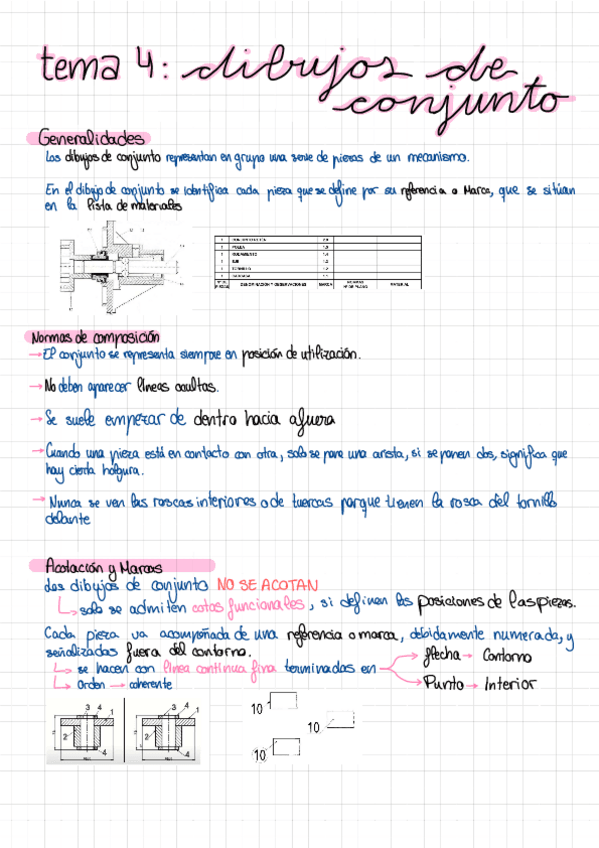 tema 4: dibujos de
conjunto
Generalidades
Los dibujos de conjunto representan en grupo una serie de piezas de un mecanismo.
En el dibujo de conjunto se identifica cada pieza que se define por su referencia o Marca, que se sitúan
en la lista de materiales
POLEA
RODAMIENTO
EJE
MARCA
MATERIAL
Normas de composición
→ El conjunto se representa siempre en posición de utilización.
→ No deben aparecer líneas ocultas.
→ Se suele empezar de dentro hacia afuera
→ Cuando una pieza está en contacto con otra, solo se pone una arista, si se ponen dos, significa que
hay cierta holgura.
→ Nunca se ven las roscas interiores o de tuercas porque tienen la rosca del tornillo
delante
Acotación y Marcas
Los dibujos de conjunto NO SE ACOTAN
↳ solo se admiten cotas funcionales, si definen las posiciones de las piezas.
Cada pieza va acompañada de una referencia o marca, debidamente numerada, y
señalizadas fuera del contorno.
↳ se hacen con línea continua fina terminadas en
flecha → Contorno
Punto → Interior
↳ Orden → coherente
3 4 1 2 4
3 4 1 2 4
10
10
10